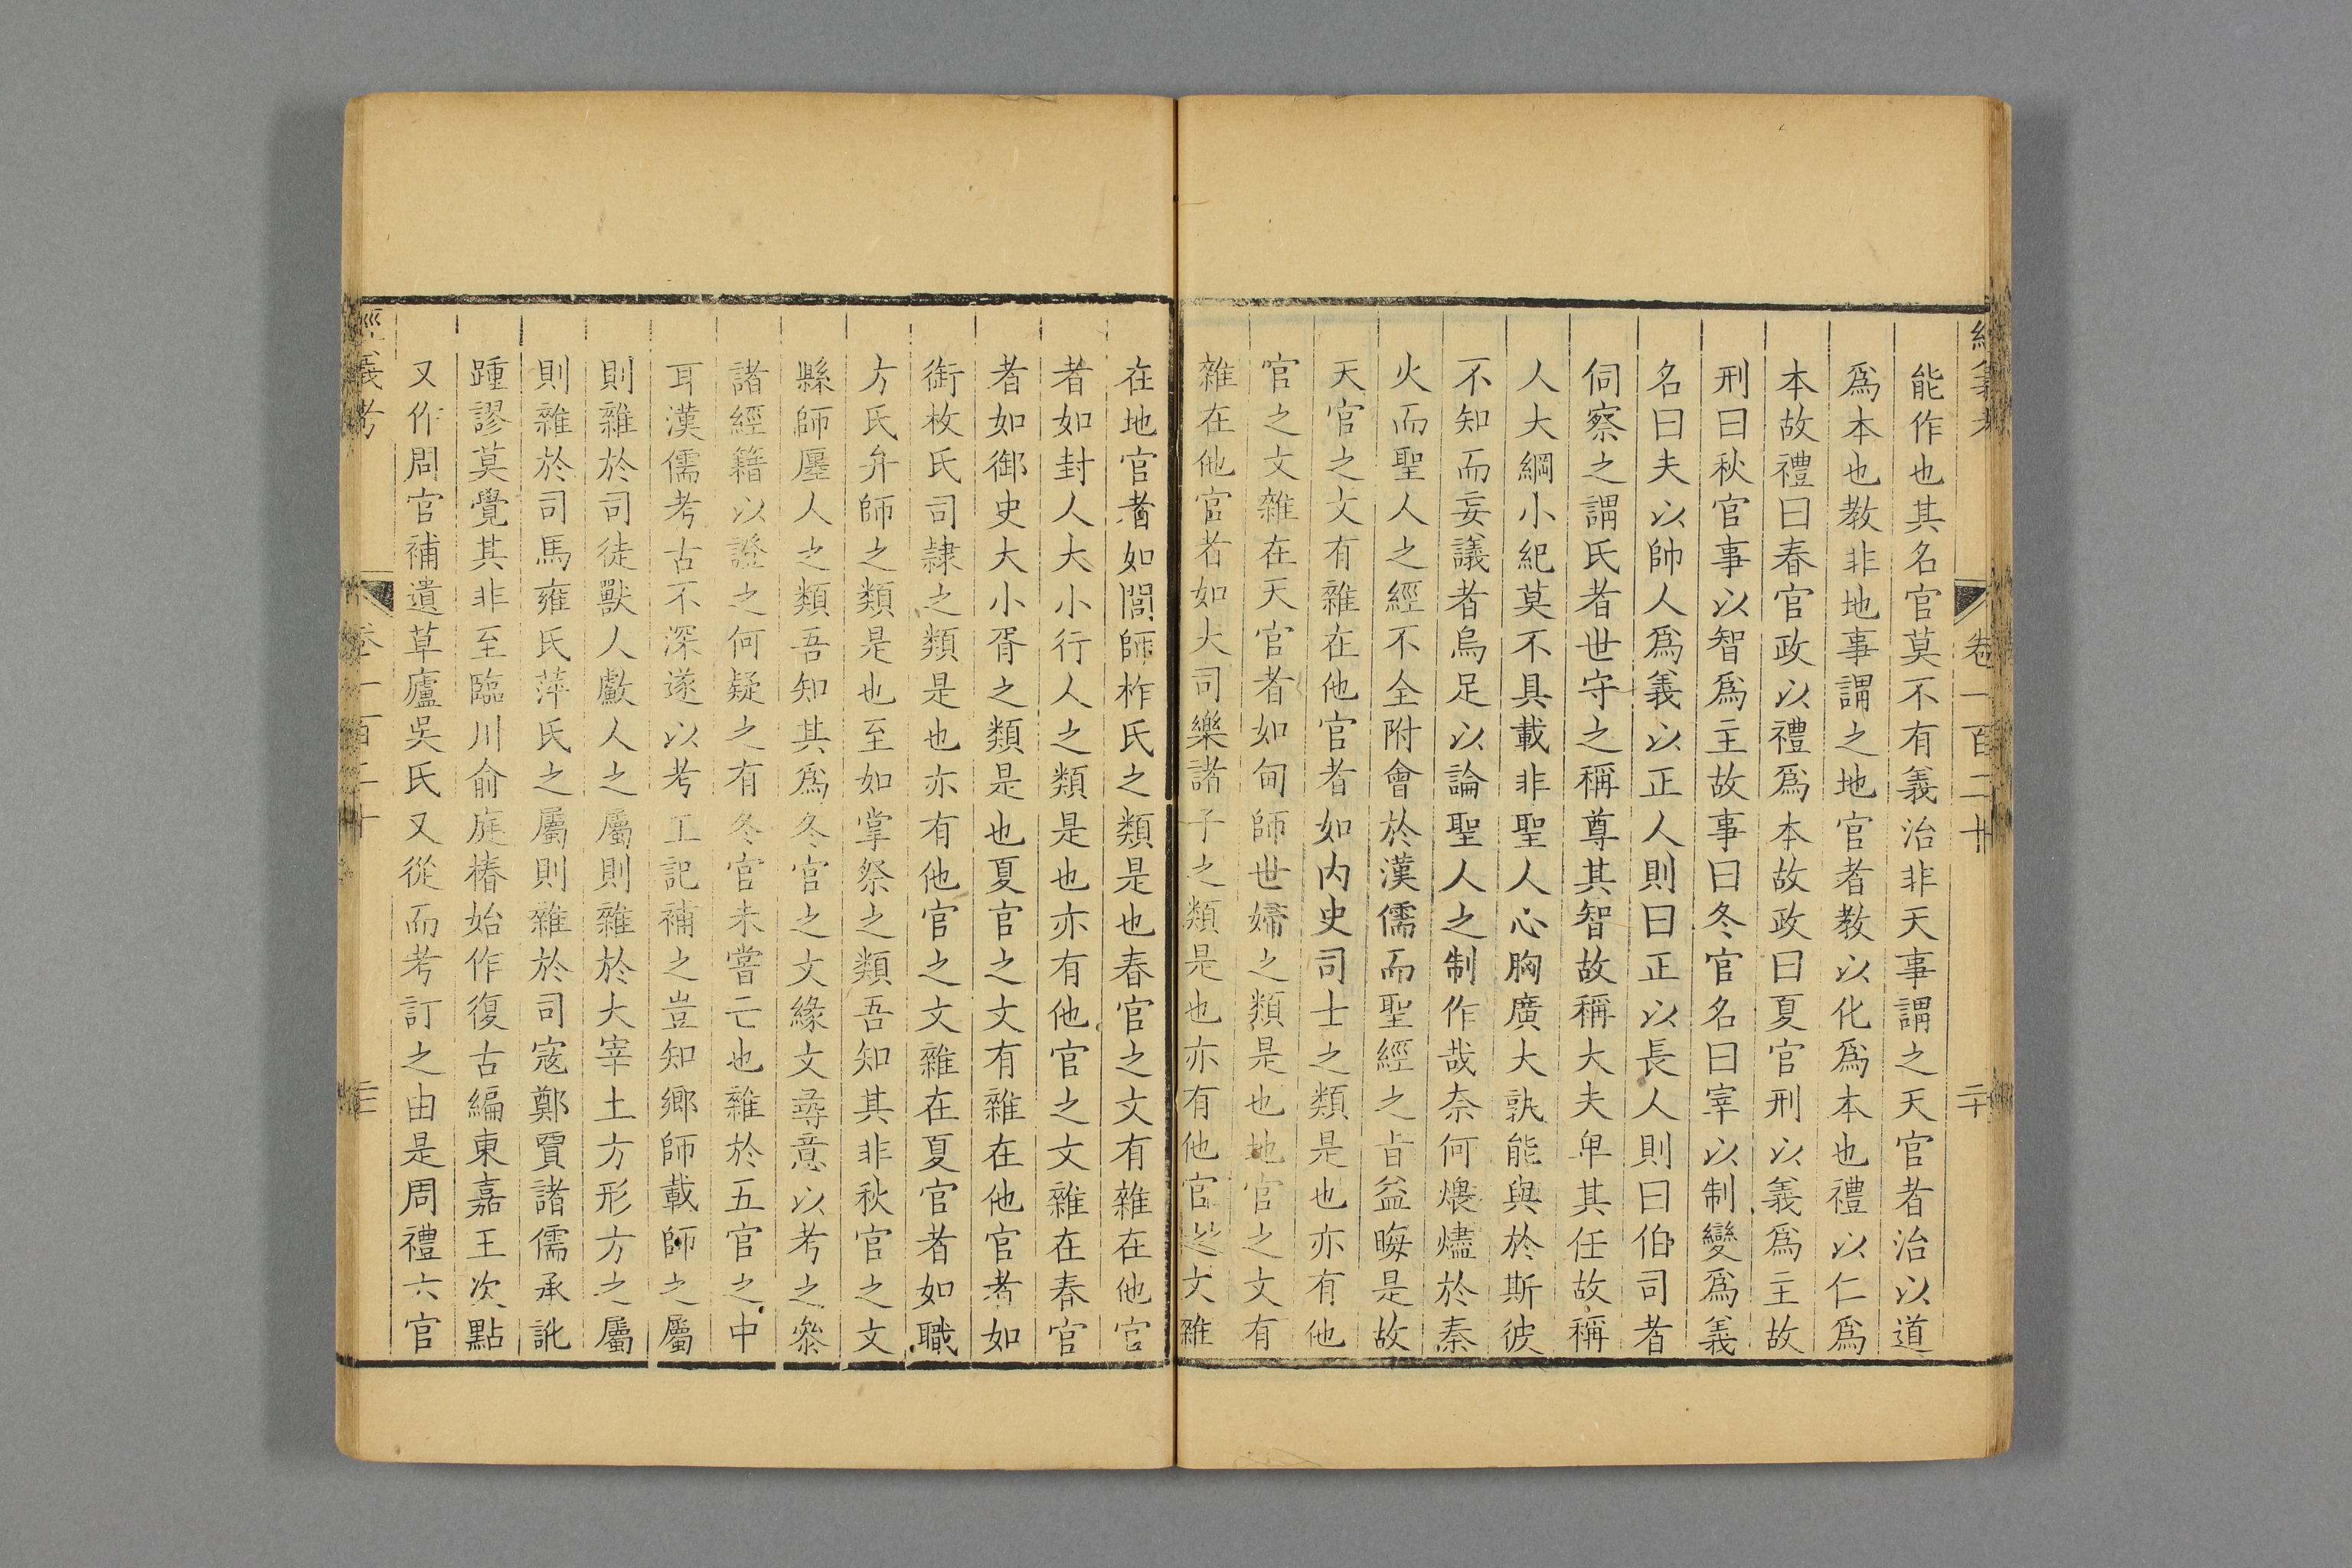 經義考 卷一百二十 二十
能作也其名官莫不有義治非天事謂之天官者治以道
爲本也教非地事謂之地官者教以化爲本也禮以仁爲
本故禮曰春官政以禮爲本故政曰夏官刑以義爲主故
刑曰秋官事以智爲主故事曰冬官名曰宰以制變爲義
名曰夫以帥人爲義以正人則曰正以長人則曰伯司者
伺察之謂氏者世守之稱尊其智故稱大夫卑其任故稱
人大綱小紀莫不具載非聖人心胸廣大孰能與於斯彼
不知而妄議者烏足以論聖人之制作哉奈何煨燼於秦
火而聖人之經不全附會於漢儒而聖經之旨益晦是故
天官之文有雜在他官者如内史司士之類是也亦有他
官之文雜在天官者如甸師世婦之類是也地官之文有
雜在他官者如大司樂諸子之類是也亦有他官之文雜
在地官者如閭師柞氏之類是也春官之文有雜在他官
者如封人大小行人之類是也亦有他官之文雜在春官
者如御史大小胥之類是也夏官之文有雜在他官者如
銜枚氏司隷之類是也亦有他官之文雜在夏官者如職
方氏弁師之類是也至如掌祭之類吾知其非秋官之文
縣師廛人之類吾知其爲冬官之文緣文尋意以考之叅
諸經籍以證之何疑之有冬官未嘗亡也雜於五官之中
耳漢儒考古不深遂以考工記補之豈知鄉師載師之屬
則雜於司徒獸人䱷人之屬則雜於大宰土方形方之屬
則雜於司馬雍氏萍氏之屬則雜於司寇鄭賈諸儒承訛
踵謬莫覺其非至臨川俞庭椿始作復古編東嘉王次點
又作周官補遺草廬吳氏又從而考訂之由是周禮六官
經義考 卷一百二十